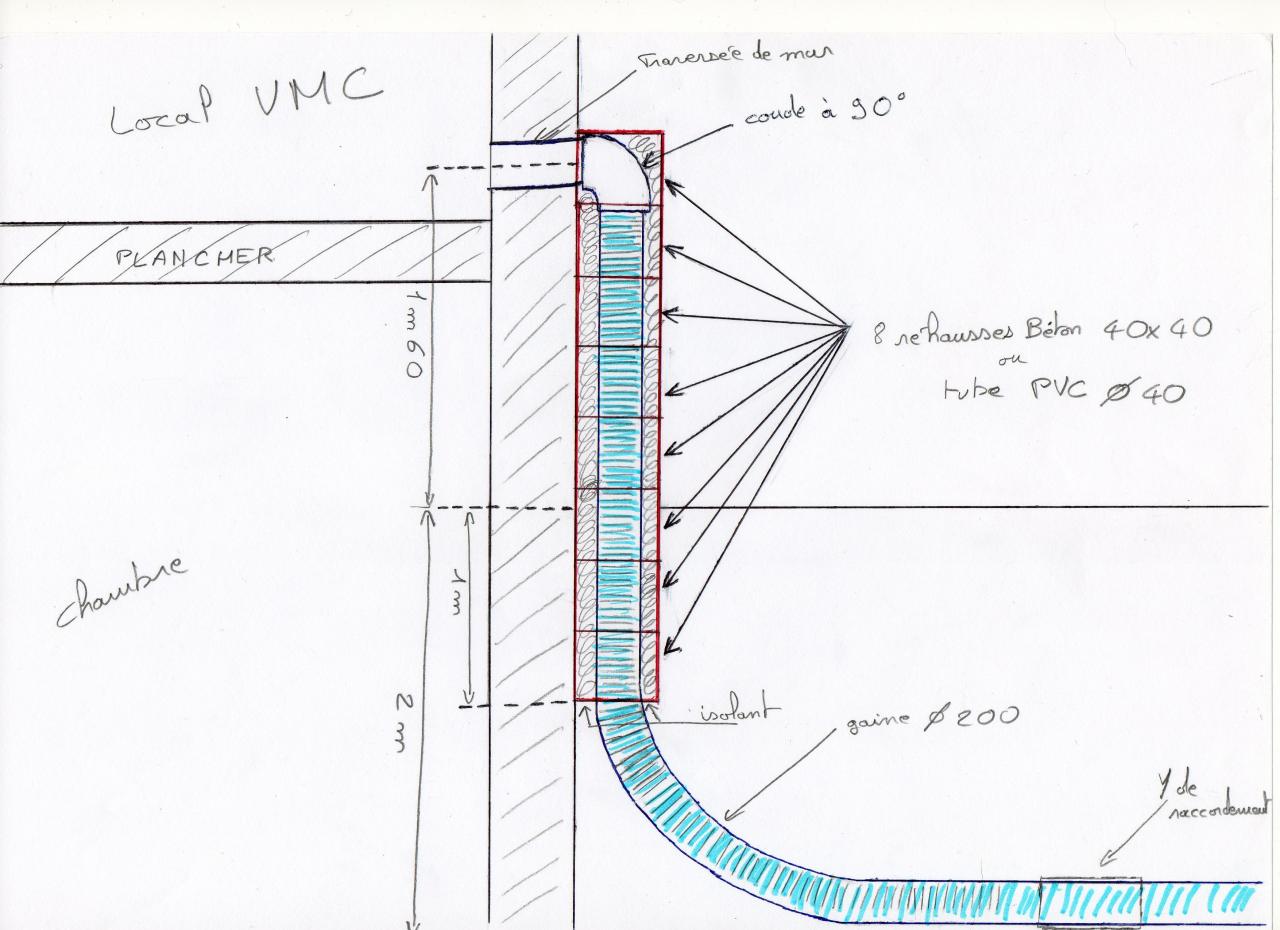 Traversée de mur
Local VMC
coude à 90°
PLANCHER
1m60
8 rehausses Béton 40x40
ou
tube PVC Ø 40
chambre
1m
2m
isolant
gaine Ø 200
Y de
raccordement